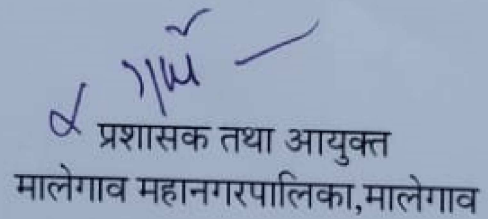 प्रशासक तथा आयुक्त
मालेगाव महानगरपालिका,मालेगाव